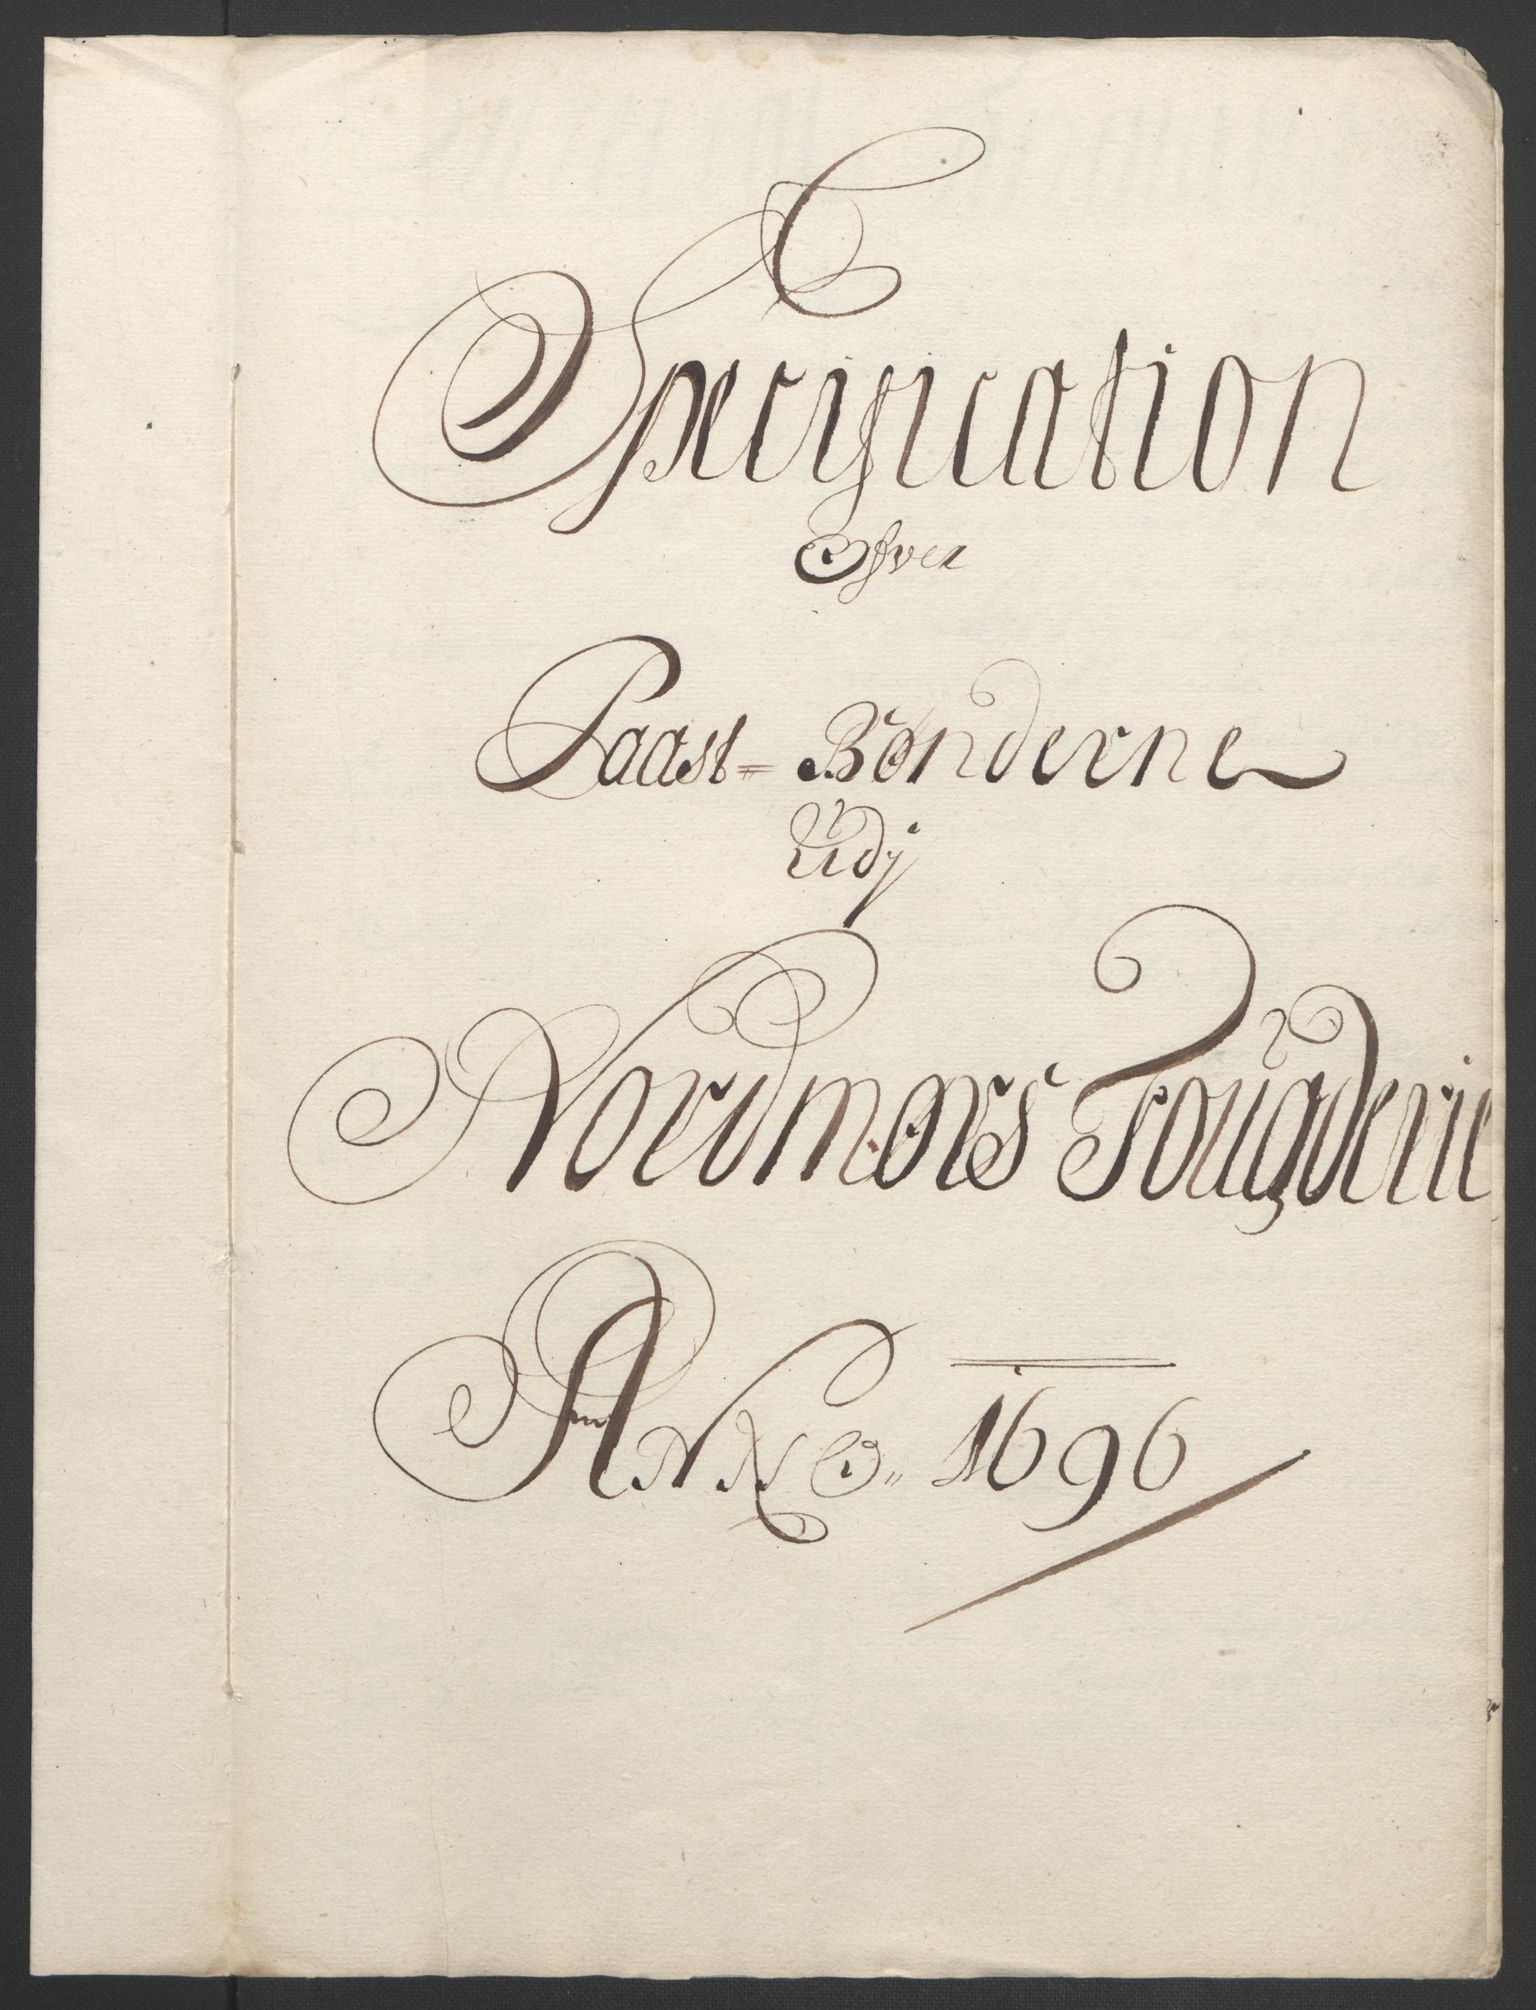 Specification
Ofver
Paast= Bønderne
Udj
Nordmørs Fougderie
ANNO" 1696